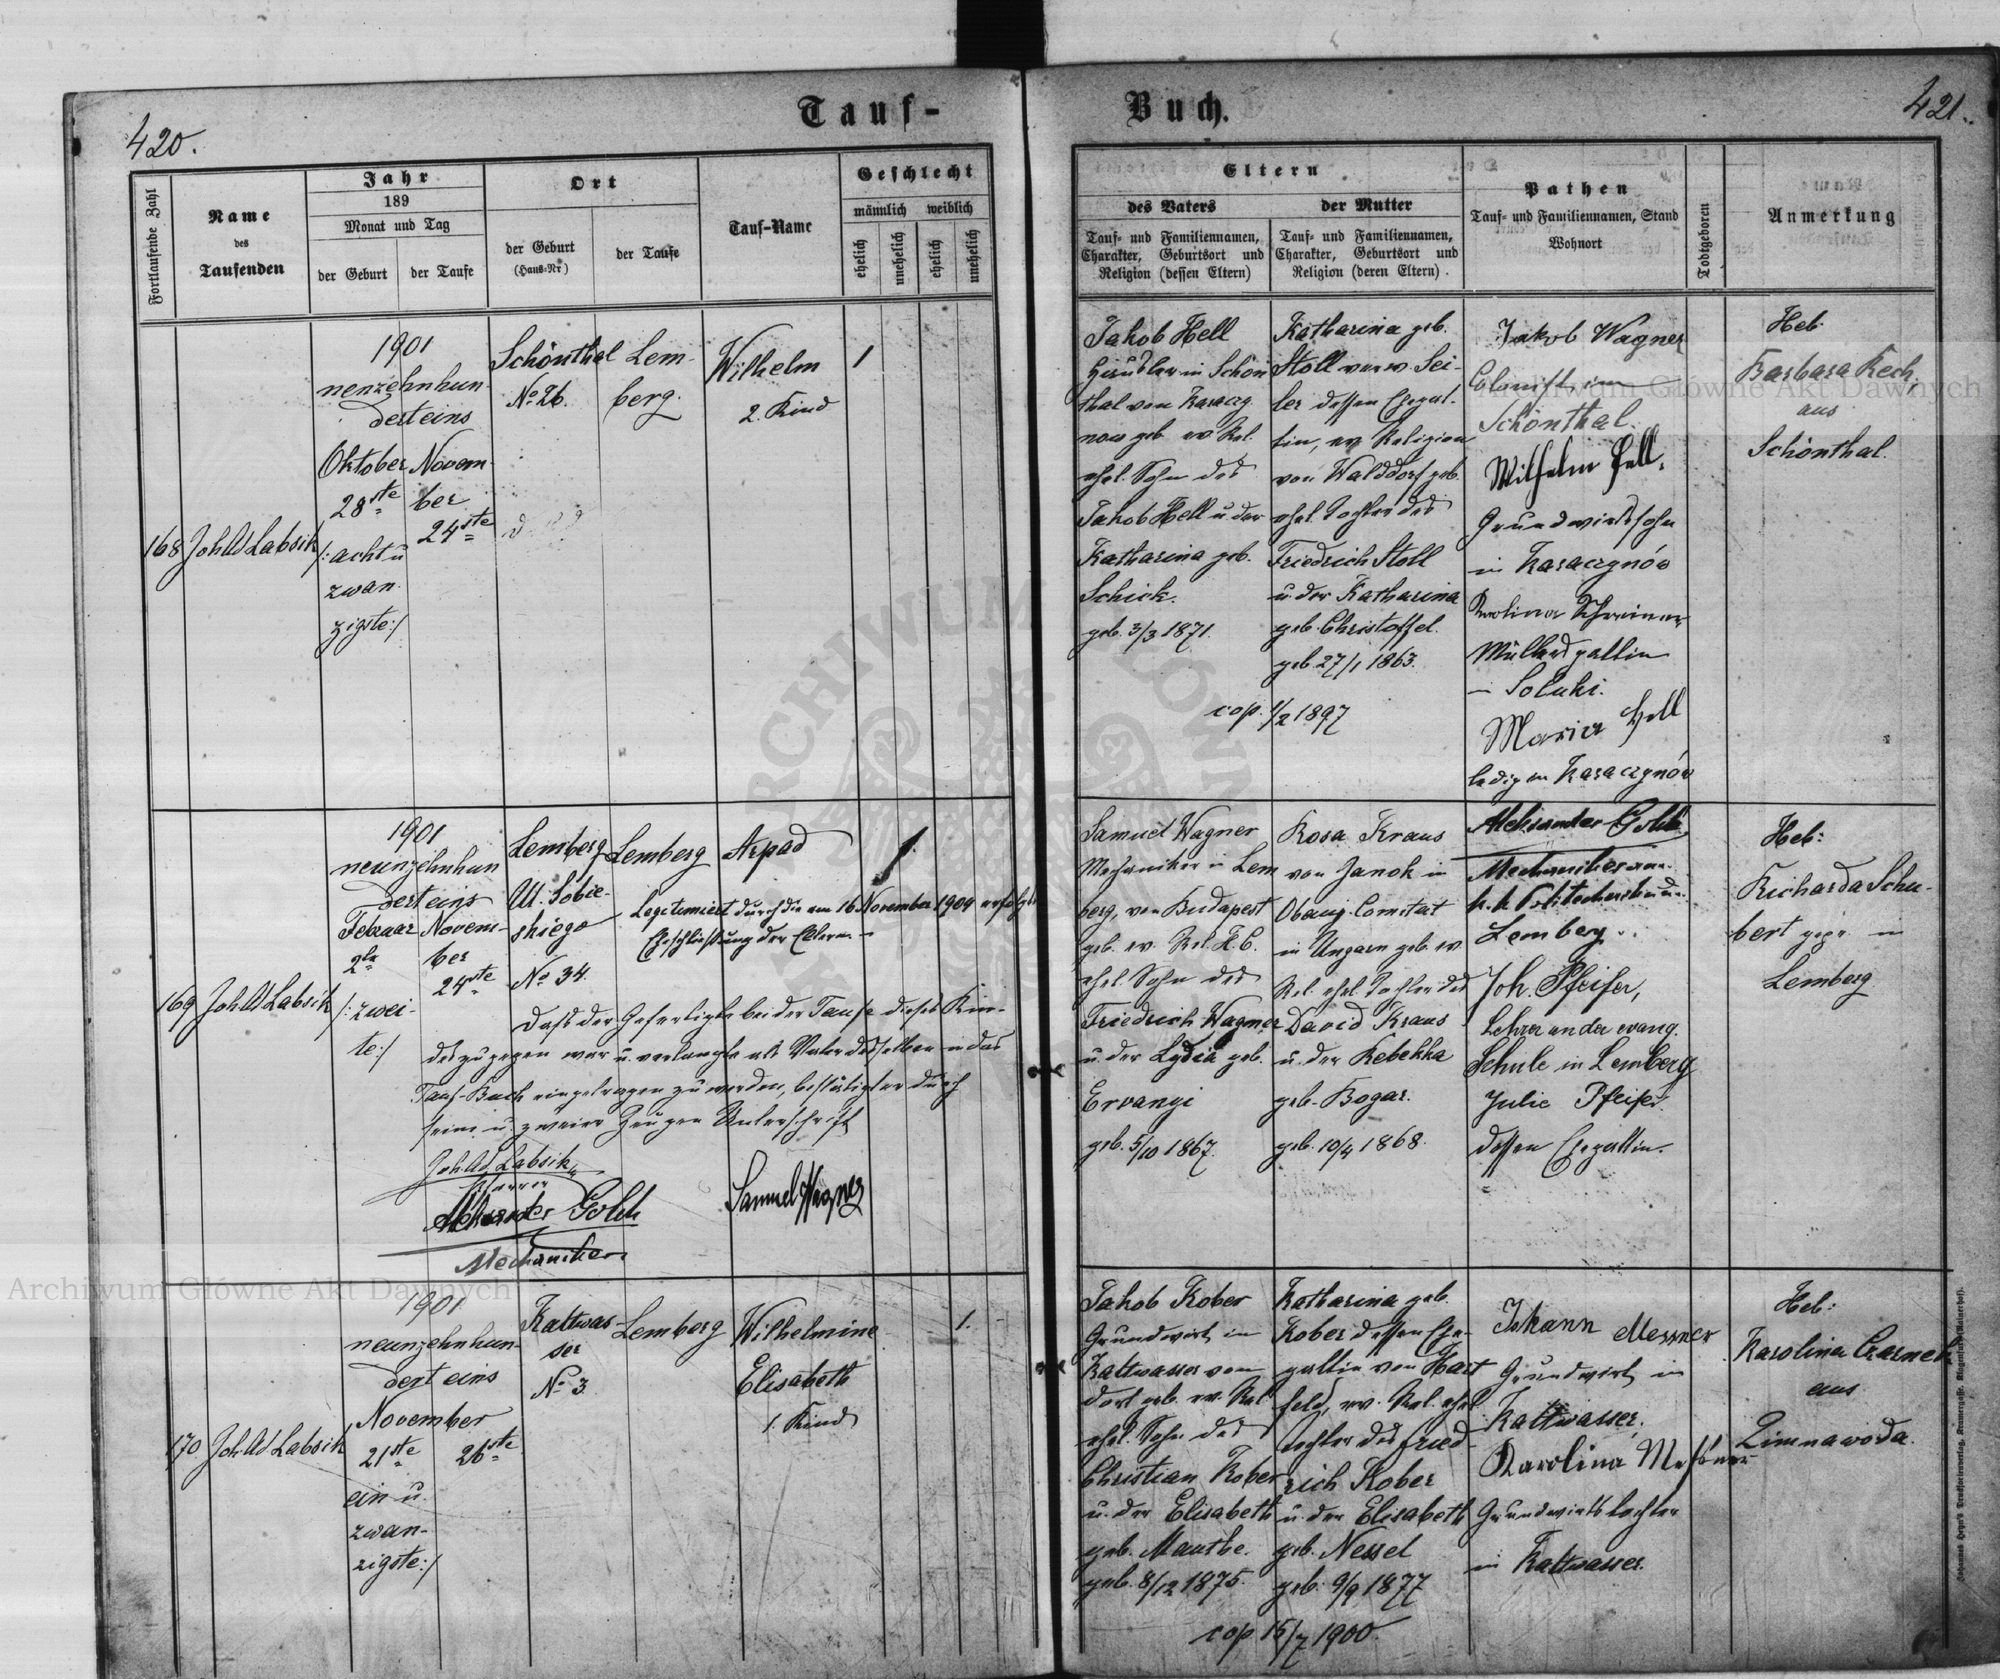 Tauf-
Buch.
420.
421.
Fortlaufende Zahl
Name
des
Taufenden
Jahr
189
Monat und Tag
der Geburt
der Taufe
Ort
der Geburt
(Haus-Nr)
der Taufe
Tauf-Name
Geschlecht
männlich
weiblich
ehelich
unehelich
ehelich
unehelich
Eltern
des Vaters
Tauf- und Familiennamen,
Charakter, Geburtsort und
Religion (dessen Eltern)
der Mutter
Tauf- und Familiennamen,
Charakter, Geburtsort und
Religion (deren Eltern).
Pathen
Tauf- und Familiennamen, Stand
Wohnort
Todtgeboren
Anmerkung
168
Joh Ad Labsik
1901
nenzehnhun-
dert eins
Oktober
28ste
/: acht u
zwan.
zigste :/
Novem-
ber
24ste
Schönthal
No 26.
Lem-
berg.
Wilhelm
2. Kind
1
Jakob Hell
Häusler in Schön
thal von Karaczy
now geb. ev Rel.
ehel. Sohn des
Jakob Hell u der
Katharina geb.
Schick.
geb. 3/3 1871.
Katharina geb.
Stoll verw. Sei-
ler dessen Ehegat-
tin, ev Religion
von Walddorf geb.
ehel. Tochter des
Friedrich Stoll
u. der Katharina
geb. Christoffel.
geb. 27/1 1863.
cop. 1/2 1897
Jakob Wagner
Colonist in
Schönthal.
Wilhelm Hell,
Grundwirtssohn
in Karaczynów
Karolina Schreiner
Müllersgattin
in Soluki.
Maria Hell
ledig in Karaczynów
Heb.
Barbara Kech
aus
Schönthal.
169
Joh Ad Labsik
1901
neunzehnhun
dert eins
Februar
2te
/: zwei-
te :/
Novem-
ber
24ste
Lemberg
Ul. Sobie-
skiego
No 34.
Lemberg
Arpad
1.
Legitimiert durch die am 16 November 1904 erfolgte
Eheschließung der Eltern.
Daß der Gefertigte bei der Taufe dieses Kin-
des zugegen war u. verlangte als Vater desselben in das
Tauf-Buch eingetragen zu werden, bestätigt er durch
seine u. zweier Zeugen Unterschrift
Joh Ad Labsik
Pfarrer
Samuel Wagner
Mechaniker
Samuel Wagner
Mechaniker in Lem
berg, von Budapest
geb. ev. Rel. H. C.
ehel. Sohn des
Friedrich Wagner
u. der Lydia geb.
Ervanyi
geb. 5/10 1867.
Rosa Kraus
von Janok in
Obauj. Comitat
in Ungarn geb. ev.
Rel. ehel. Tochter des
David Kraus
u. der Rebekka
geb. Bogar.
geb. 10/4 1868.
Mechaniker an
Lemberg.
Joh. Pfeifer,
Lehrer an der evang.
Schule in Lemberg
Julie Pfeifer
dessen Ehegattin.
Heb:
Richarda Schu-
bert gepr. in
Lemberg
170
Joh Ad Labsik
1901
neunzehnhun-
dert eins
November
21ste
26ste
ein u.
zwan-
zigste :/
Kaltwas-
ser
No 3.
Lemberg
Wilhelmine
Elisabeth
1. Kind
1.
Jakob Kober
Grundwirt in
Kaltwasser von
dort geb. ev. Rel
ehel. Sohn des
Christian Kober
u. der Elisabeth
geb. Manthe.
geb. 8/12 1875.
Katharina geb.
Kober dessen Ehe-
gattin von Hart
feld, ev. Rel. ehel
Tochter des Fried-
rich Kober
u. der Elisabeth
geb. Nessel
geb. 9/9 1877
cop 15/7 1900.
Johann Messner
Grundwirt in
Kaltwasser.
Karolina Meßner
Grundwirtstochter
in Kaltwasser.
Heb:
Karolina Czarnek
aus
Zimnawoda.
Archiwum Główne Akt Dawnych
Archiwum Główne Akt Dawnych